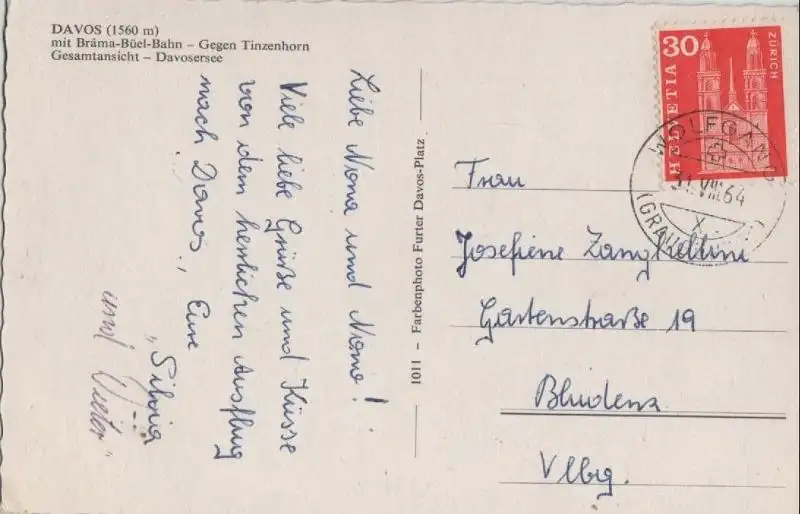 DAVOS (1560 m)
mit Bräma-Büel-Bahn – Gegen Tinzenhorn
Gesamtansicht – Davosersee
Liebe Nona und Nono!
Viele liebe Grüße und Küsse
von dem herrlichen Ausflug
nach Davos, Eure
"Silvia
und Dieter"
1011 – Farbenphoto Furter Davos-Platz
HELVETIA
30
ZÜRICH
WOLFGANG
31.VIII.64
X
(GRAU
Frau
Josefiene
Gartenstraße 19
Bludenz
Vlbg.